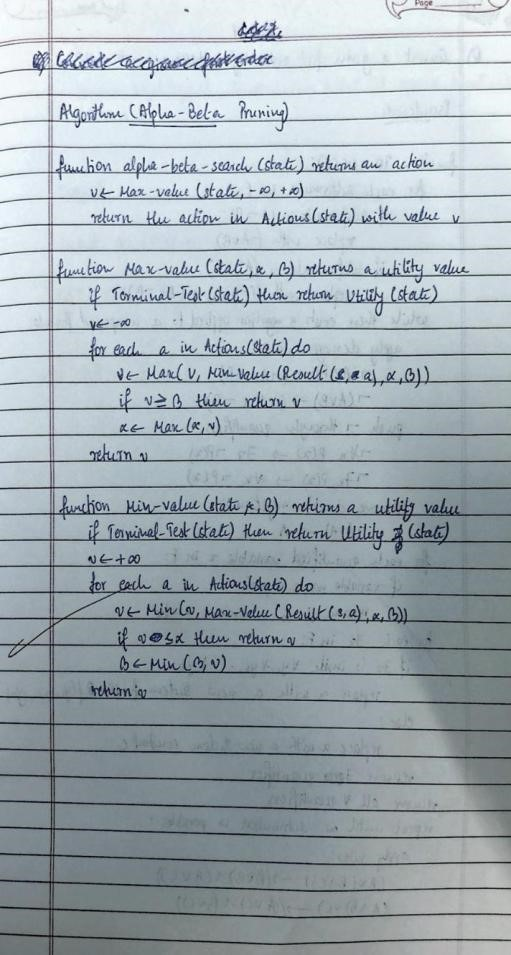 Page
Algorithm (Alpha-Beta Pruning)
function alpha-beta-search (state) returns an action
v ← Max-value (state, -∞, +∞)
return the action in Actions(state) with value v
function Max-value (state, α, β) returns a utility value
if Terminal-Test(state) then return Utility (state)
v ← -∞
for each a in Actions(state) do
v ← Max( v, Min-value (Result (s, a), α, β))
if v ≥ β then return v
α ← Max (α, v)
return v
function Min-value (state α, β) returns a utility value
if Terminal-Test(state) then return Utility (state)
v ← +∞
for each a in Actions(state) do
v ← Min(v, Max-value (Result (s, a), α, β))
if v ≤ α then return v
β ← Min (β, v)
return v